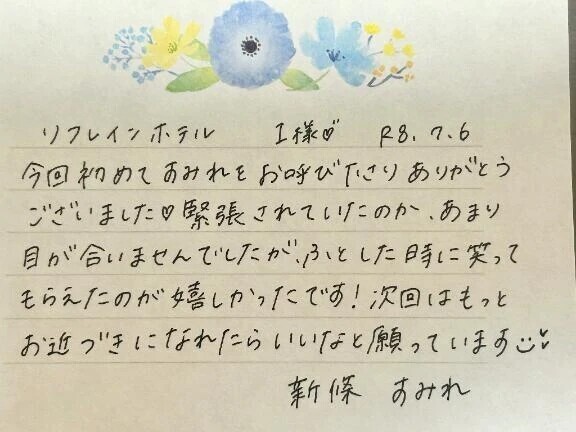 リフレインホテル　I様♡　R8.7.6
今回初めてすみれをお呼び下さりありがとう
ございました♡緊張されていたのか、あまり
目が合いませんでしたが、ふとした時に笑って
もらえたのが嬉しかったです！次回はもっと
お近づきになれたらいいなと願っています
新條　すみれ